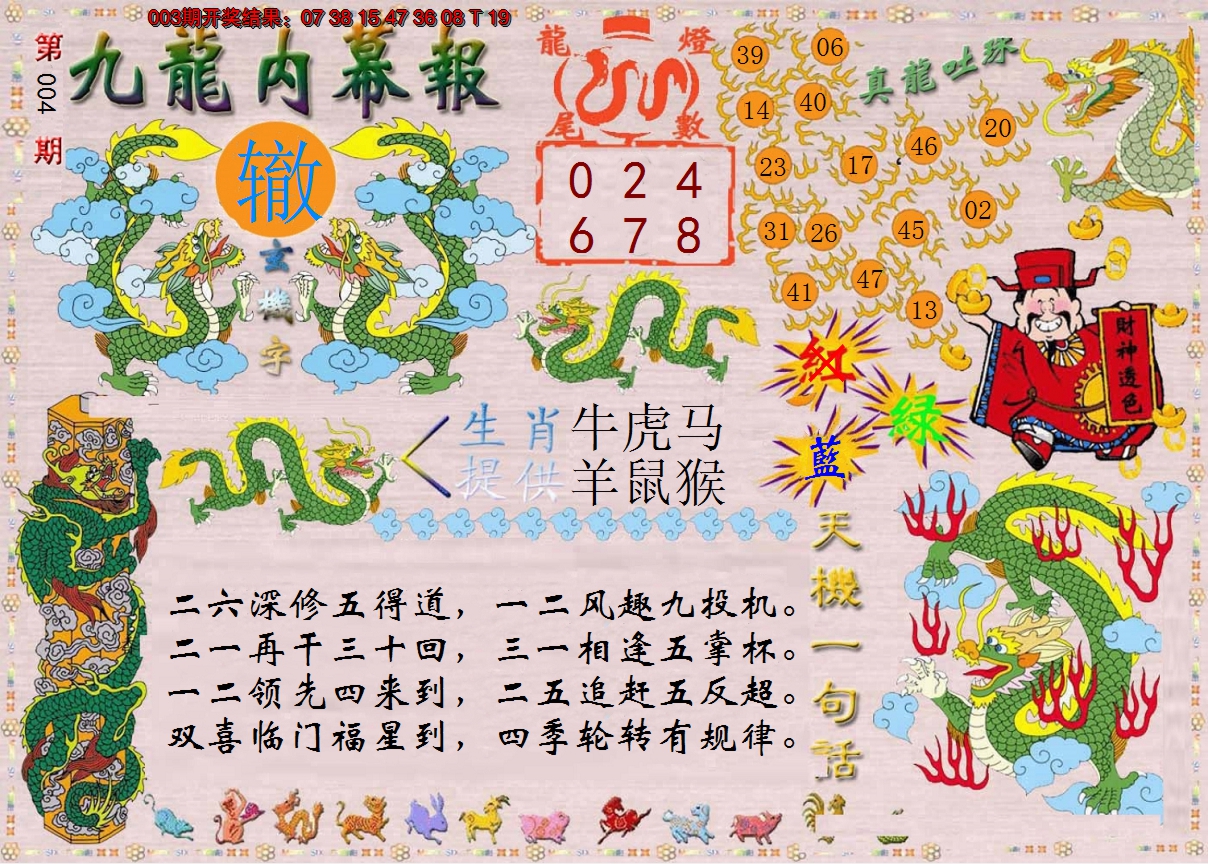 003期开奖结果：07 38 15 47 36 08 T 19
第004期
九龍内幕報
辙
玄機字
龍燈
尾數
0 2 4
6 7 8
真龍吐珠
39 06
14 40
46 20
23 17
02
31 26 45
41 47
13
財神透色
紅
綠
藍
生肖 牛虎马
提供 羊鼠猴
天機一句話
二六深修五得道，一二风趣九投机。
二一再干三十回，三一相逢五掌杯。
一二领先四来到，二五追赶五反超。
双喜临门福星到，四季轮转有规律。